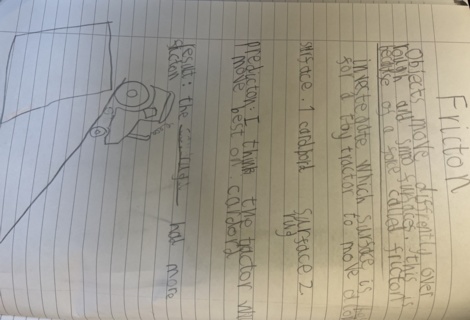 Fricton
Objects move diffrently over
rough and smo surfaces. this is
because of a force called friction
investegate which surface is
for a toy tractor to move
surface 1 cardbord surface 2
prediction: I think the tractor
move best on cardbord
result: the had more
fricton